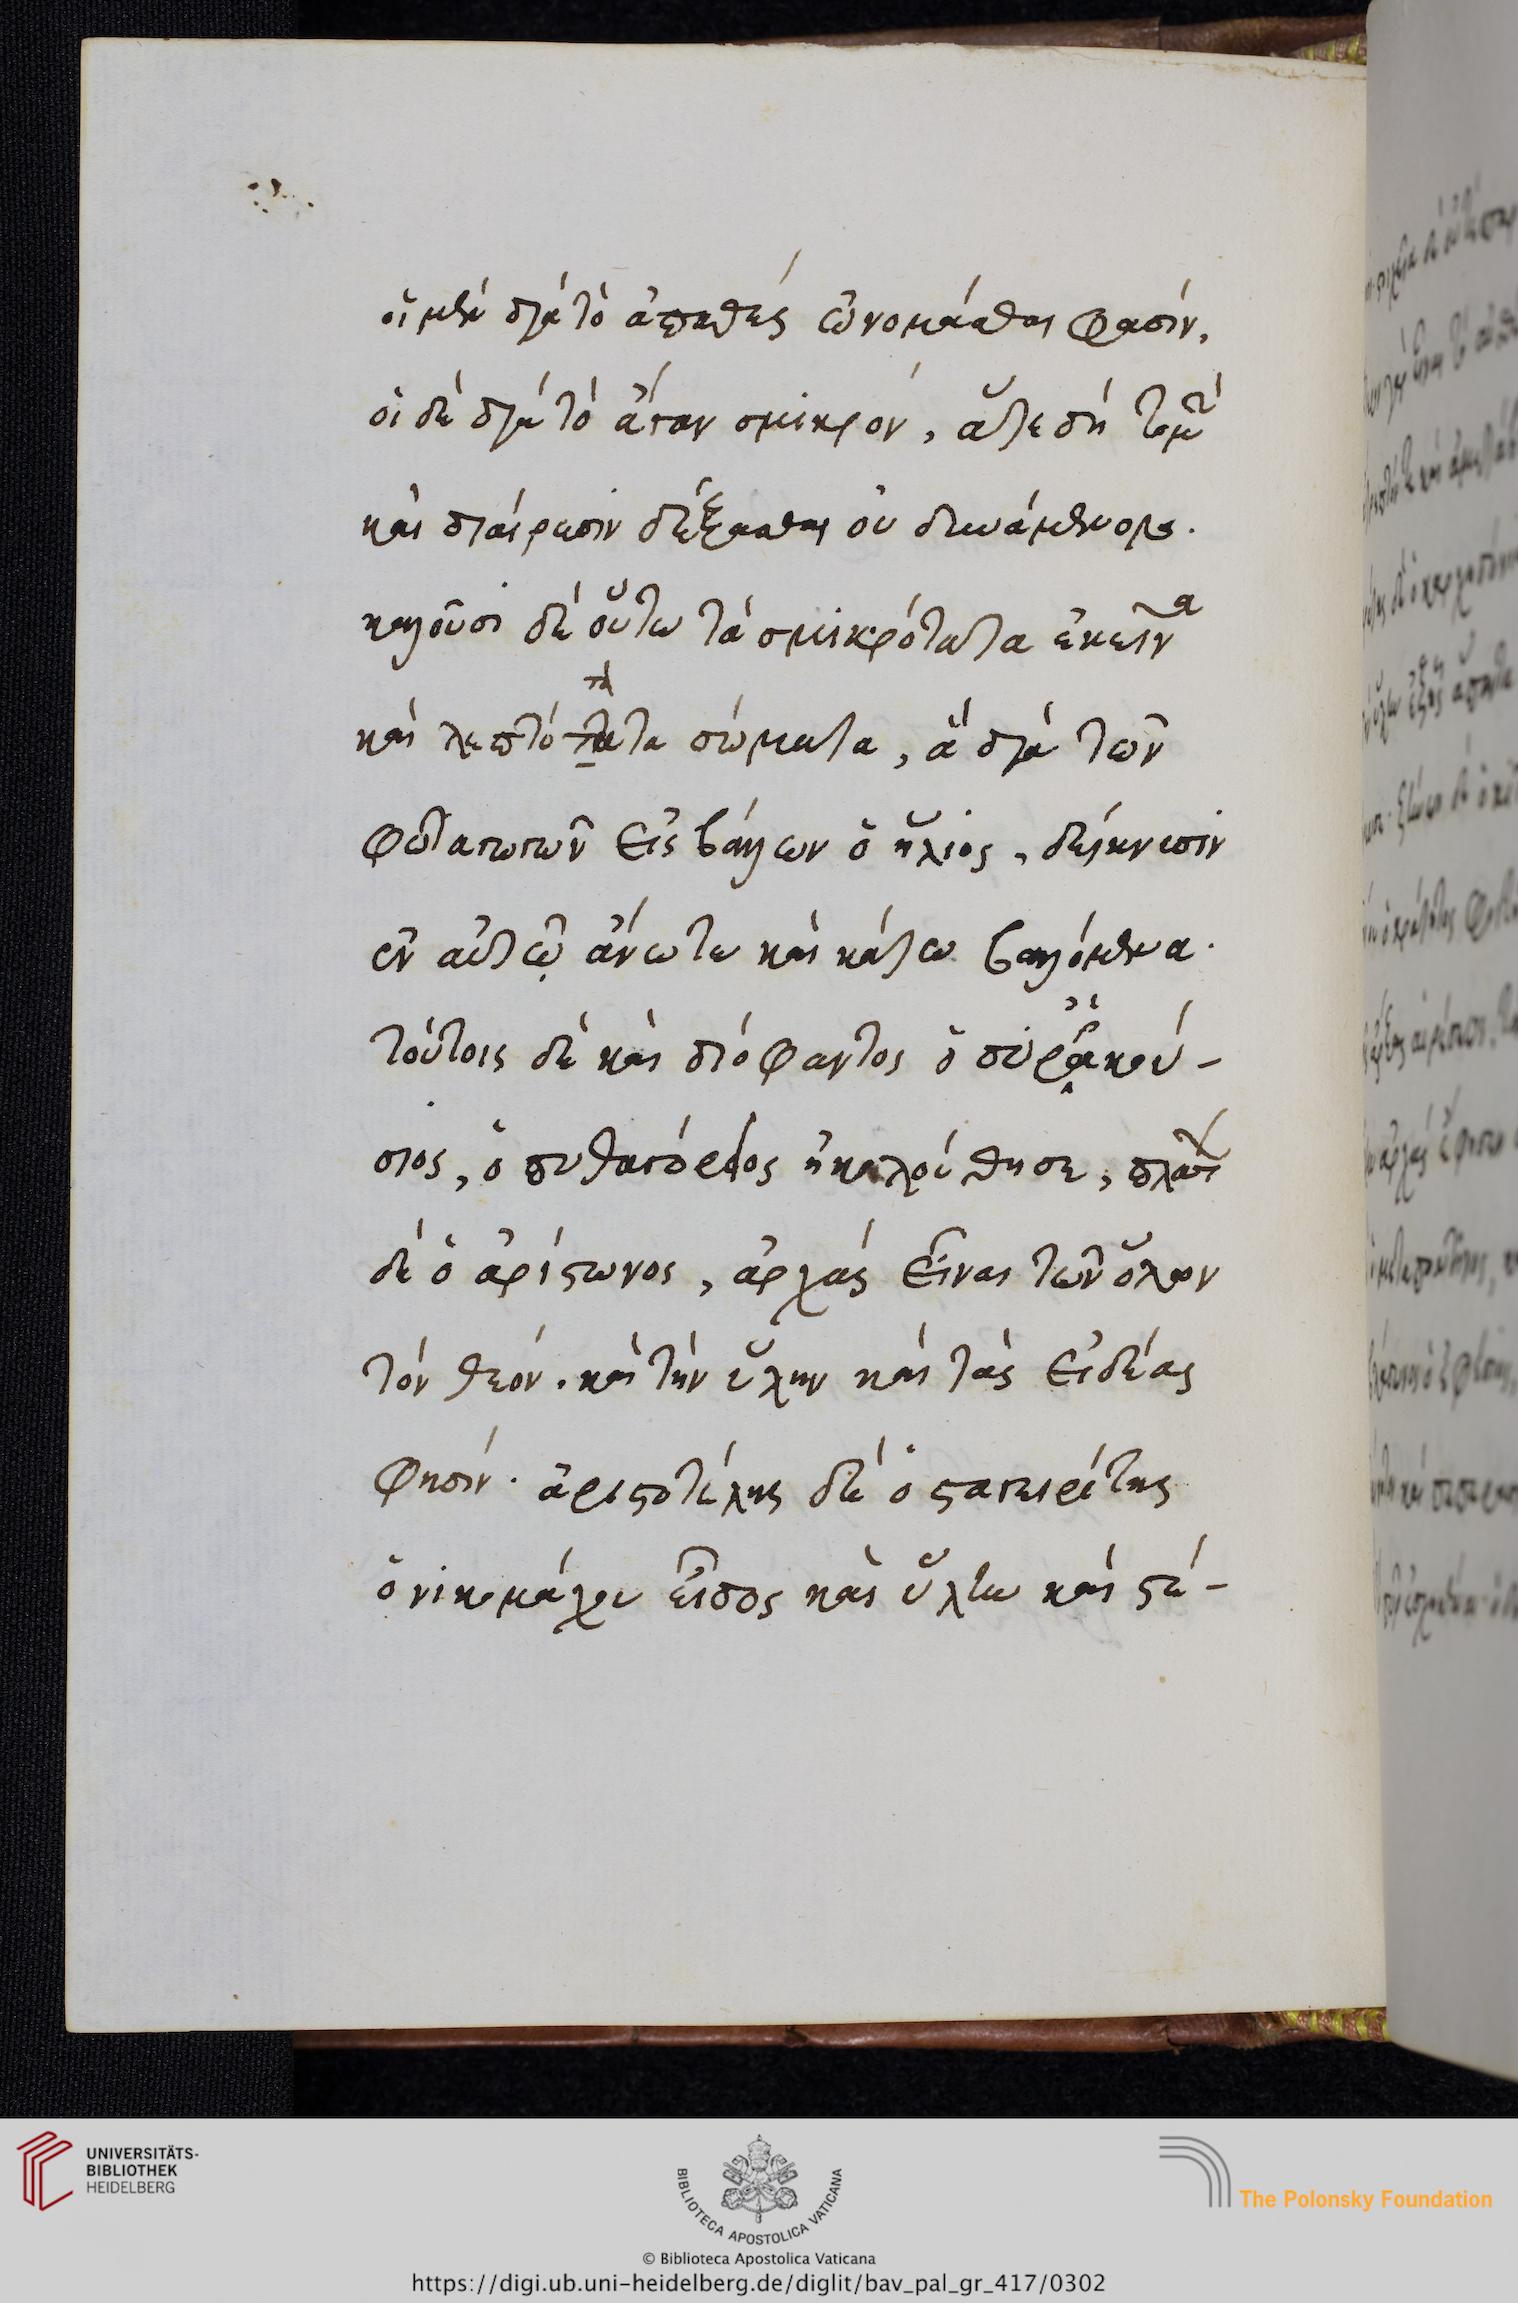 οἱ μὲν διὰ τὸ ἀπαθὲς ὠνομάσθαι φασίν,
οἱ δὲ διὰ τὸ ἄγαν σμικρόν, ἅτε δὴ τομὴν
καὶ διαίρεσιν δέξασθαι οὐ δυνάμενα.
καλοῦσι δὲ οὕτω τὰ σμικρότατα ἐκεῖνα
καὶ λεπτότατα σώματα, ἃ διὰ τῶν
φωταγωγῶν εἰσβάλλων ὁ ἥλιος, δείκνυσιν
ἐν αὐτῷ ἄνω τε καὶ κάτω βαλλόμενα.
τούτοις δὲ καὶ διόφαντος ὁ συρακού-
σιος, ὁ πυθαγόρειος ἠκολούθησε, πλάτων
δὲ ὁ ἀρίστωνος, ἀρχὰς εἶναι τῶν ὅλων
τὸν θεόν. καὶ τὴν ὕλην καὶ τὰς εἰδέας
φησίν. ἀριστοτέλης δὲ ὁ σταγειρίτης
ὁ νικομάχου εἶδος καὶ ὕλην καὶ στέ-
UNIVERSITÄTS-
BIBLIOTHEK
HEIDELBERG
BIBLIOTECA APOSTOLICA VATICANA
The Polonsky Foundation
© Biblioteca Apostolica Vaticana
https://digi.ub.uni-heidelberg.de/diglit/bav_pal_gr_417/0302